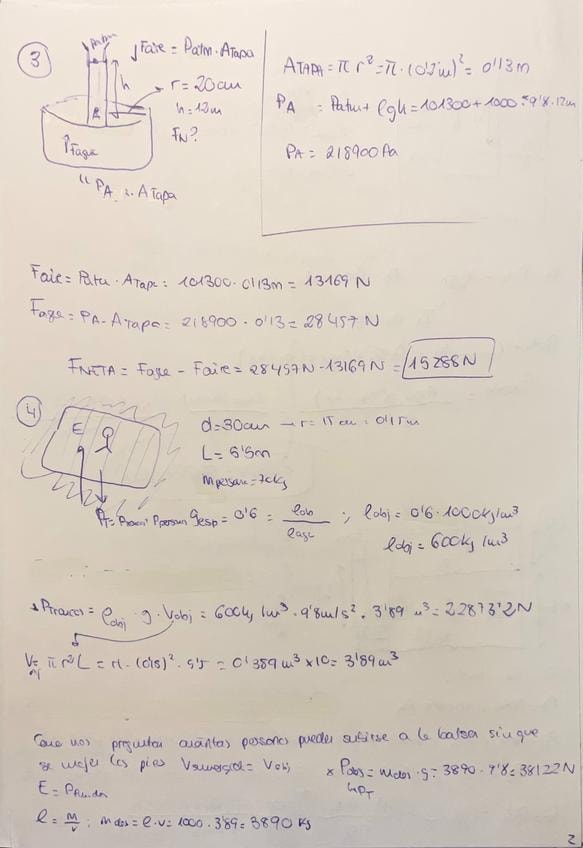 3
Patm
↓Faire = Patm · Atapa
h
r = 20cm
h = 12m
FN?
↑Fagua
" PA · Atapa
ATAPA = π r² = π · (0'2m)² = 0'13m
PA = Patm + ρgh = 101300 + 1000 · 9'8 · 12m
PA = 218900 Pa
Faire = Patm · Atapa = 101300 · 0'13m = 13169 N
Fagua = PA · Atapa = 218900 · 0'13 = 28457 N
FNETA = Fagua - Faire = 28457N - 13169 N = 15288N
4
E
d = 30cm → r = 15 cm = 0'15m
L = 5'5m
mpersona = 70kg
PT = Ptroncos + Ppersonas
ρesp = 0'6 = ρobj / ρagua ; ρobj = 0'6 · 1000kg/m³
ρobj = 600kg/m³
* Ptroncos = ρobj · g · Vobj = 600kg/m³ · 9'8m/s² · 3'89 m³ = 22873'2N
V = π r² L = π · (0'15)² · 5'5 = 0'389m³ x10 = 3'89m³
Como nos preguntan cuántas personas pueden subirse a la balsa sin que
se mojen los pies Vsumergido = Vobj
* Pdes = mdes · g = 3890 · 9'8 = 38122N
↳PT
E = Pfluido
ρ = m/v ; mdes = ρ · v = 1000 · 3'89 = 3890 kg
2